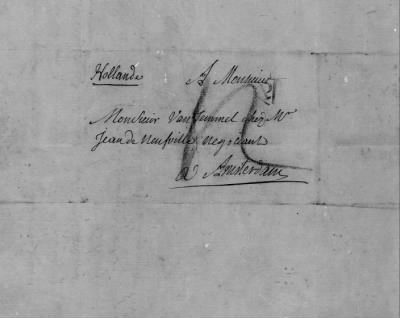 Hollande A Monsieur
Monsieur Van chez Mr
Jean de Neufville negociant
a Amsterdam